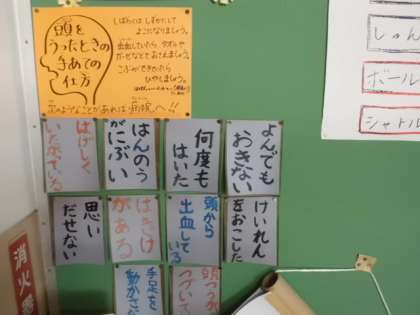 頭を
うったときの
手あての
仕方
しばらくは しずかにして
よこになりましょう。
出血していたら タオルや
ガーゼなどで おさえましょう。
こぶができたら
ひやしましょう。
次のようなことがあれば 病院へ!!
よんでも
おきない
何度も
はいた
はんのう
がにぶい
はげしく
いたがっている
けいれん
をおこした
頭から
出血している
はきけ
がある
思い
だせない
頭つうが
つづいて
手足を
動かさ
しゅん
ボール
シャトル
消火器